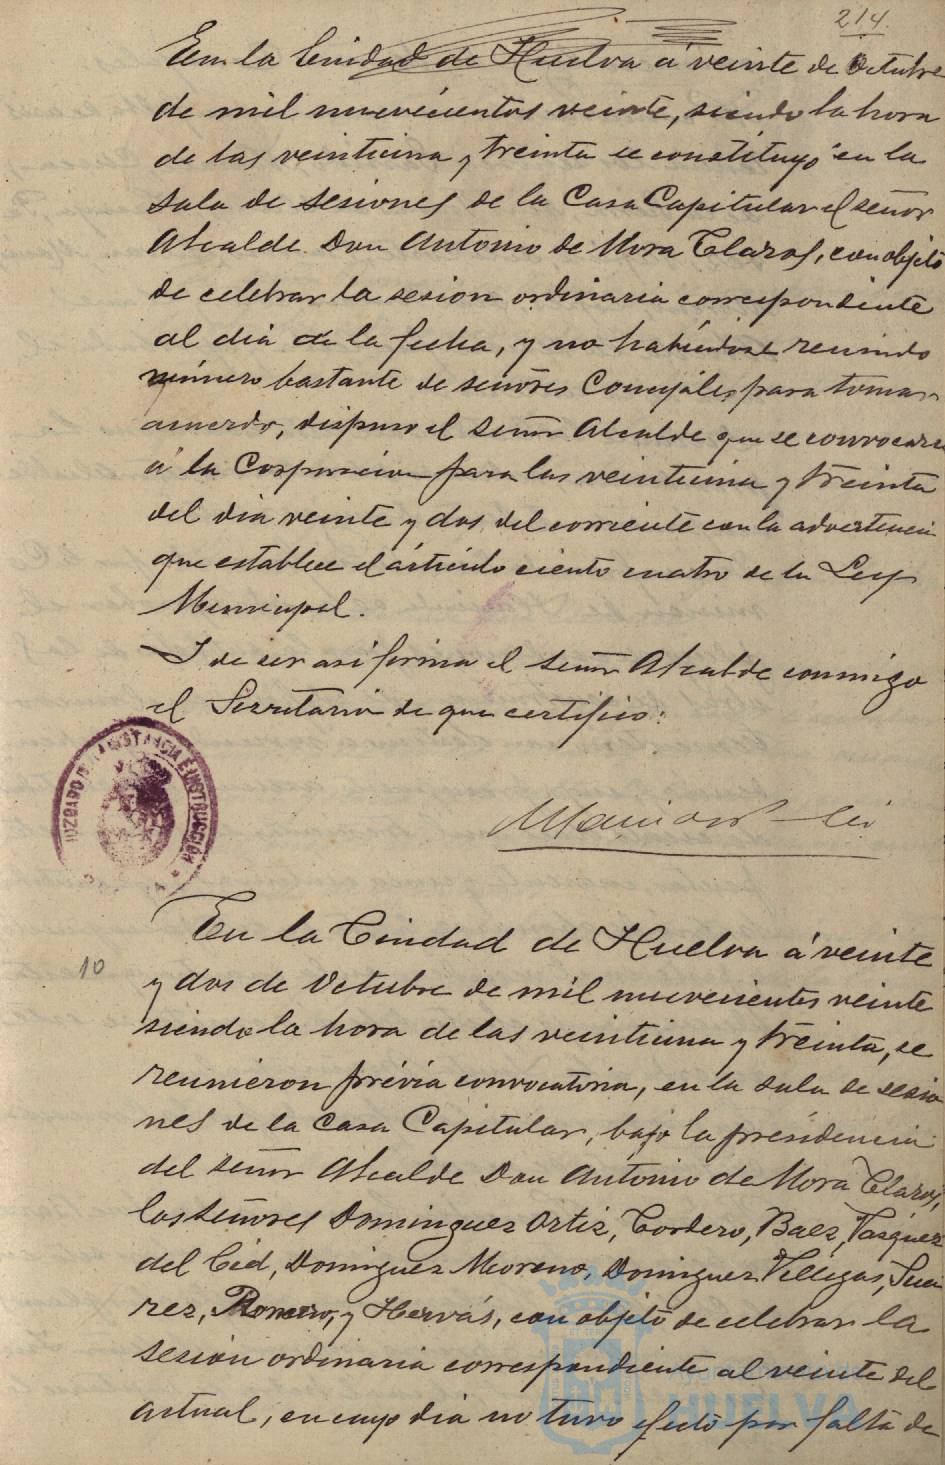 214.
En la Ciudad de Huelva á veinte de Octubre
de mil nuevecientos veinte, siendo la hora
de las veintiuna y treinta se constituyó en la
sala de sesiones de la Casa Capitular el señor
Alcalde Don Antonio de Mora Claros, con objeto
de celebrar la sesion ordinaria correspondiente
al dia de la fecha, y no habiendose reunido
número bastante de señores Concejales para tomar
acuerdo, dispuso el señor Alcalde que se convocara
á la Corporacion para las veintiuna y treinta
del dia veinte y dos del corriente con la advertencia
que establece el artículo ciento cuatro de la Ley
Municipal.
Y de ser asi firma el señor Alcalde conmigo
el Secretario de que certifico:
JUZGADO DE INSTANCIA É INSTRUCCIÓN
En la Ciudad de Huelva á veinte
10
y dos de Octubre de mil nuevecientos veinte
siendo la hora de las veintiuna y treinta, se
reunieron prévia convocatoria, en la sala de sesio
nes de la Casa Capitular, bajo la presidencia
del señor Alcalde Don Antonio de Mora Claros,
los señores Dominguez Ortiz, Cordero, Baez, Vasquez
del Cid, Dominguez Moreno, Dominguez Villegas, Sua
rez, Romero, y Hervás, con objeto de celebrar la
sesion ordinaria correspondiente al veinte del
actual, en cuyo dia no tuvo efecto por falta de
HUELVA